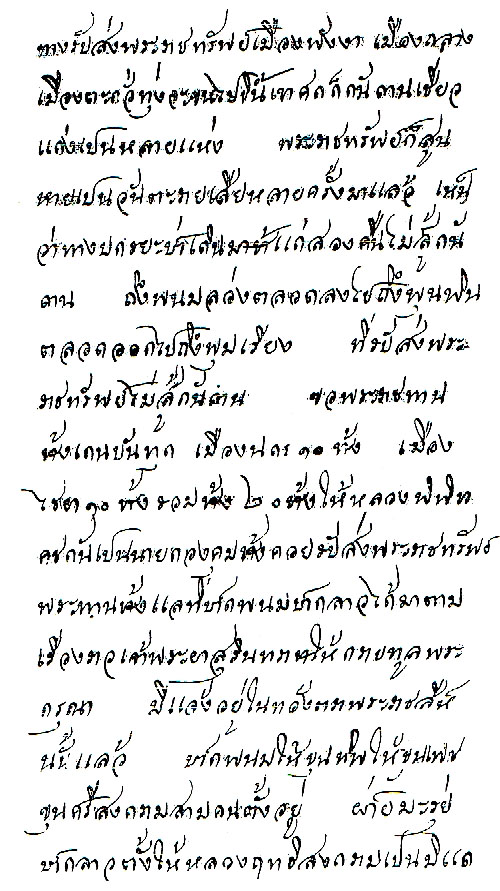 ทางรับส่งพระราชทรัพยเมืองพังงา เมืองถลาง
เมืองตะกัวทุ่ง
แต่งเปนหลายแห่ง พระราชทรัพยก็สูน
หายเปนอันตะรายเสียหลายครั้งมาแล้ว เหน
ว่าทางปกาษะยะป่าเดินมาห้าแก่สองคืนไม่สู้กัน
ดาน ถึงพนมล่องตลอดลงไปถึงพุนพิน
ตลอดออกไปถึงพุมเรียง ที่รับส่งพระ
ราชทรัพยไม่สู้กันดาน ขอพระราชทาน
ช้างเกนบันทุก เมืองนคร ๑๐ ช้าง เมือง
ไชยา ๑๐ ช้าง รวมช้าง ๒๐ ช้างให้หลวงพิพิท
คชกันเปนนายกองคุมช้างคอยรับส่งพระราชทรัพย
พระทานช้างแลที่ปากพนมปากลาวได้มาตาม
เรื่องราวเจ้าพระยาสุรินทราชาให้กราบทูลพระ
กรุณา มีแจ้งอยู่ในท้องตราพระราชสีห
นั้นแล้ว ปากพนมให้ขุนทิพ ให้ขุนเพช
ขุนศรีสงครามสามคนตั้งอยู่ ฝ่าย
ปากลาวตั้งให้หลวงฤทธิสงครามเป็น